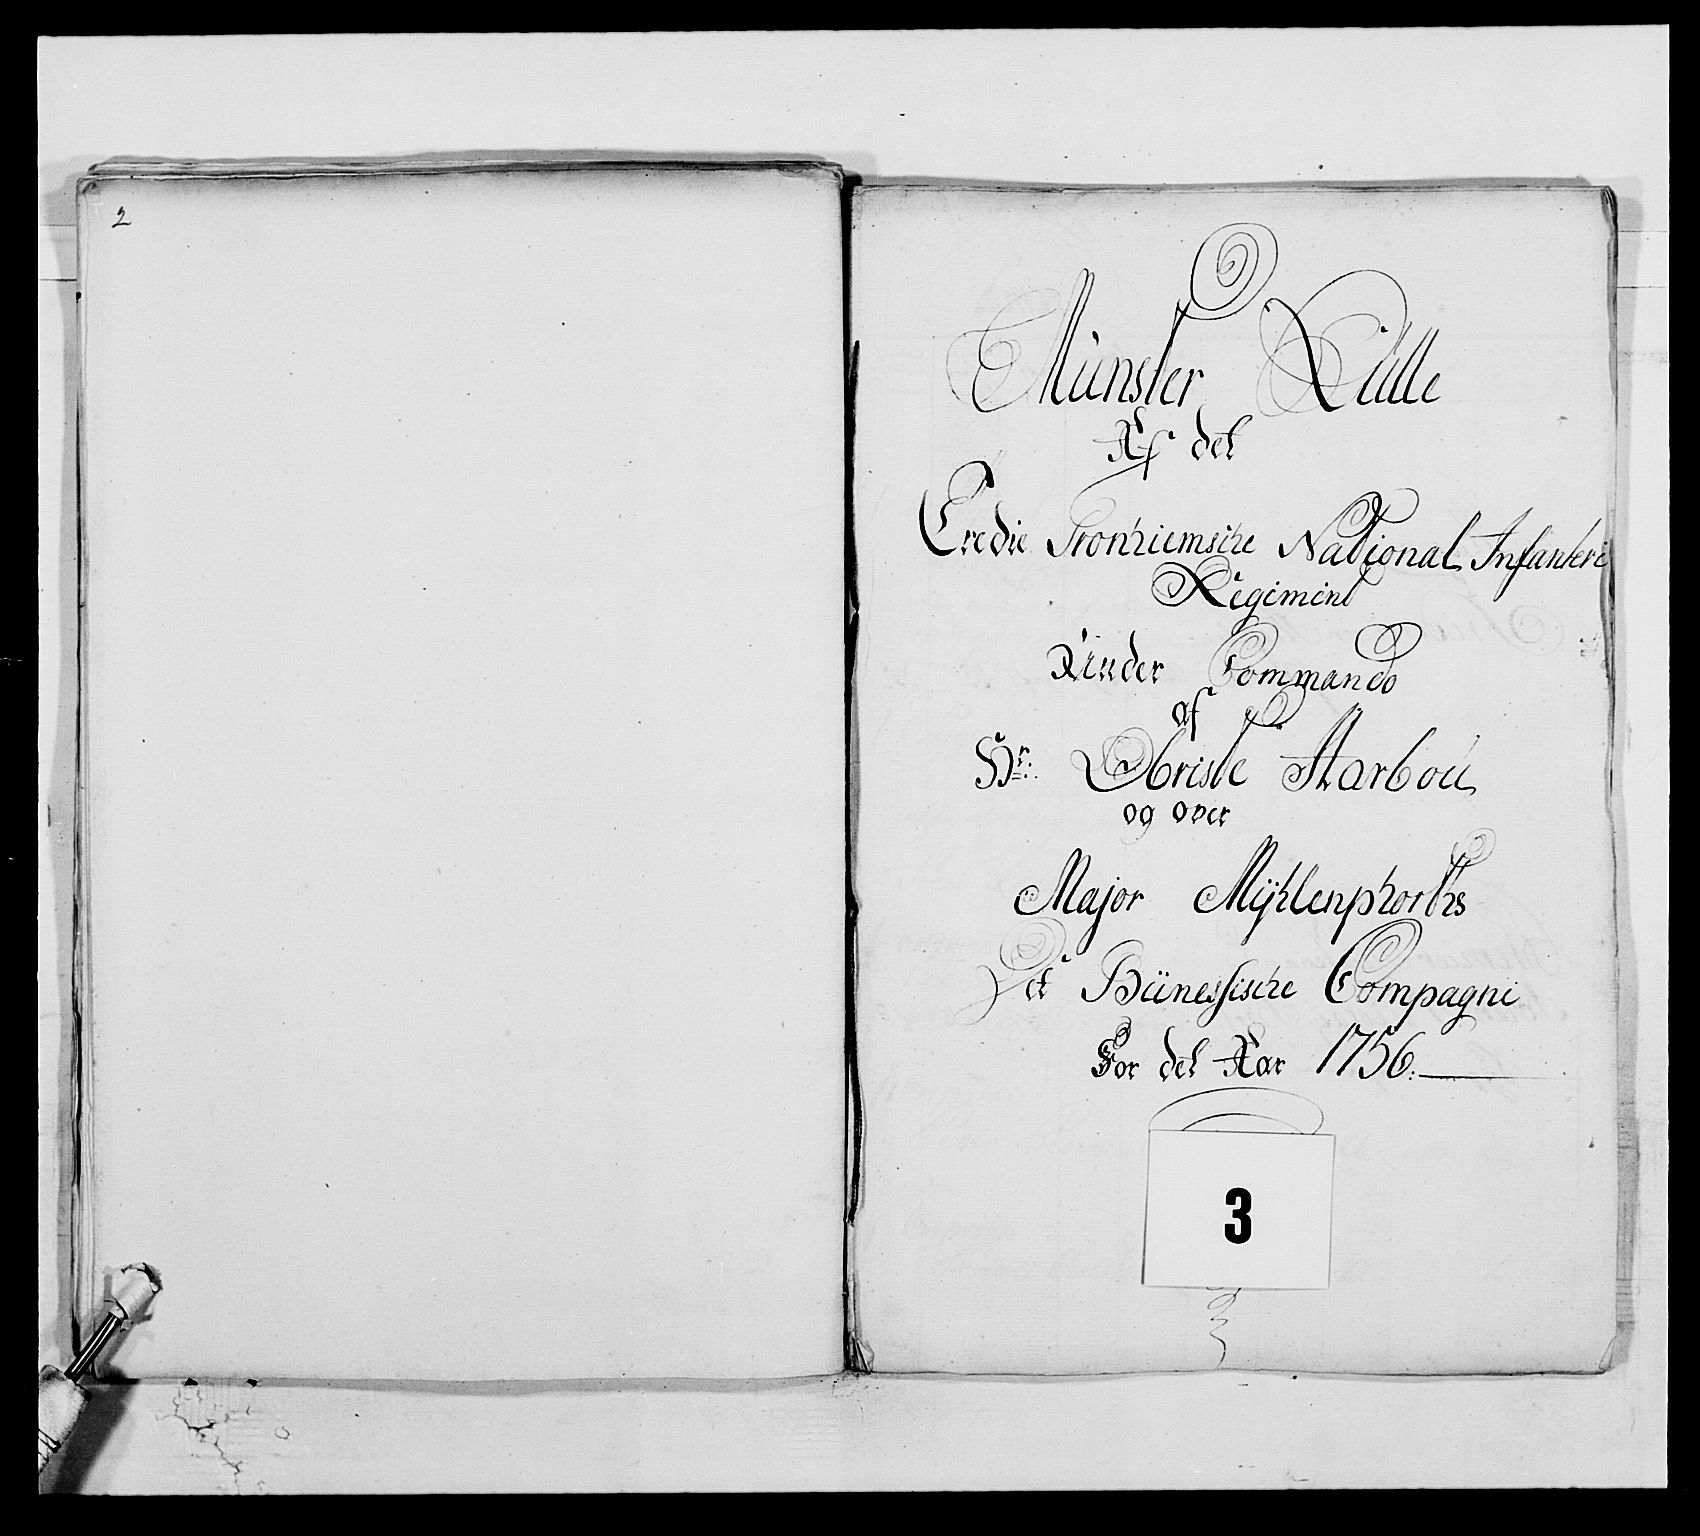 2
Münster Rülle
Af det
Tredie Tronhiemsche National Infanteri
Regiment
Under Commando
af
Hr: Obriste Starbou
og over
Major Mÿhlenphorths
Bünessische Compagni
For det Aar 1756.
3